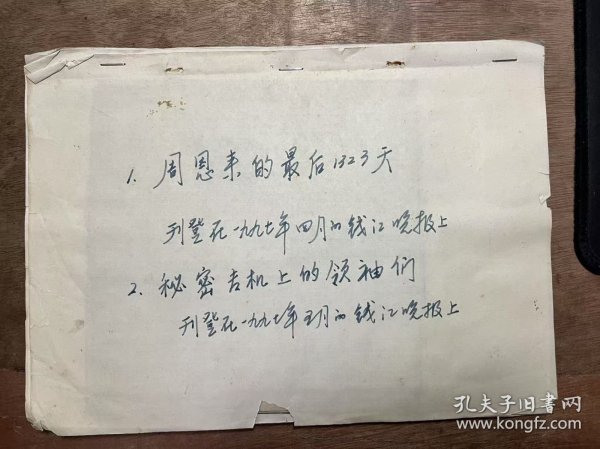 1. 周恩来的最后1323天
刊登在一九九七年四月的钱江晚报上
2. 秘密专机上的领袖们
刊登在一九九七年五月的钱江晚报上
孔夫子旧书网
www.kongfz.com